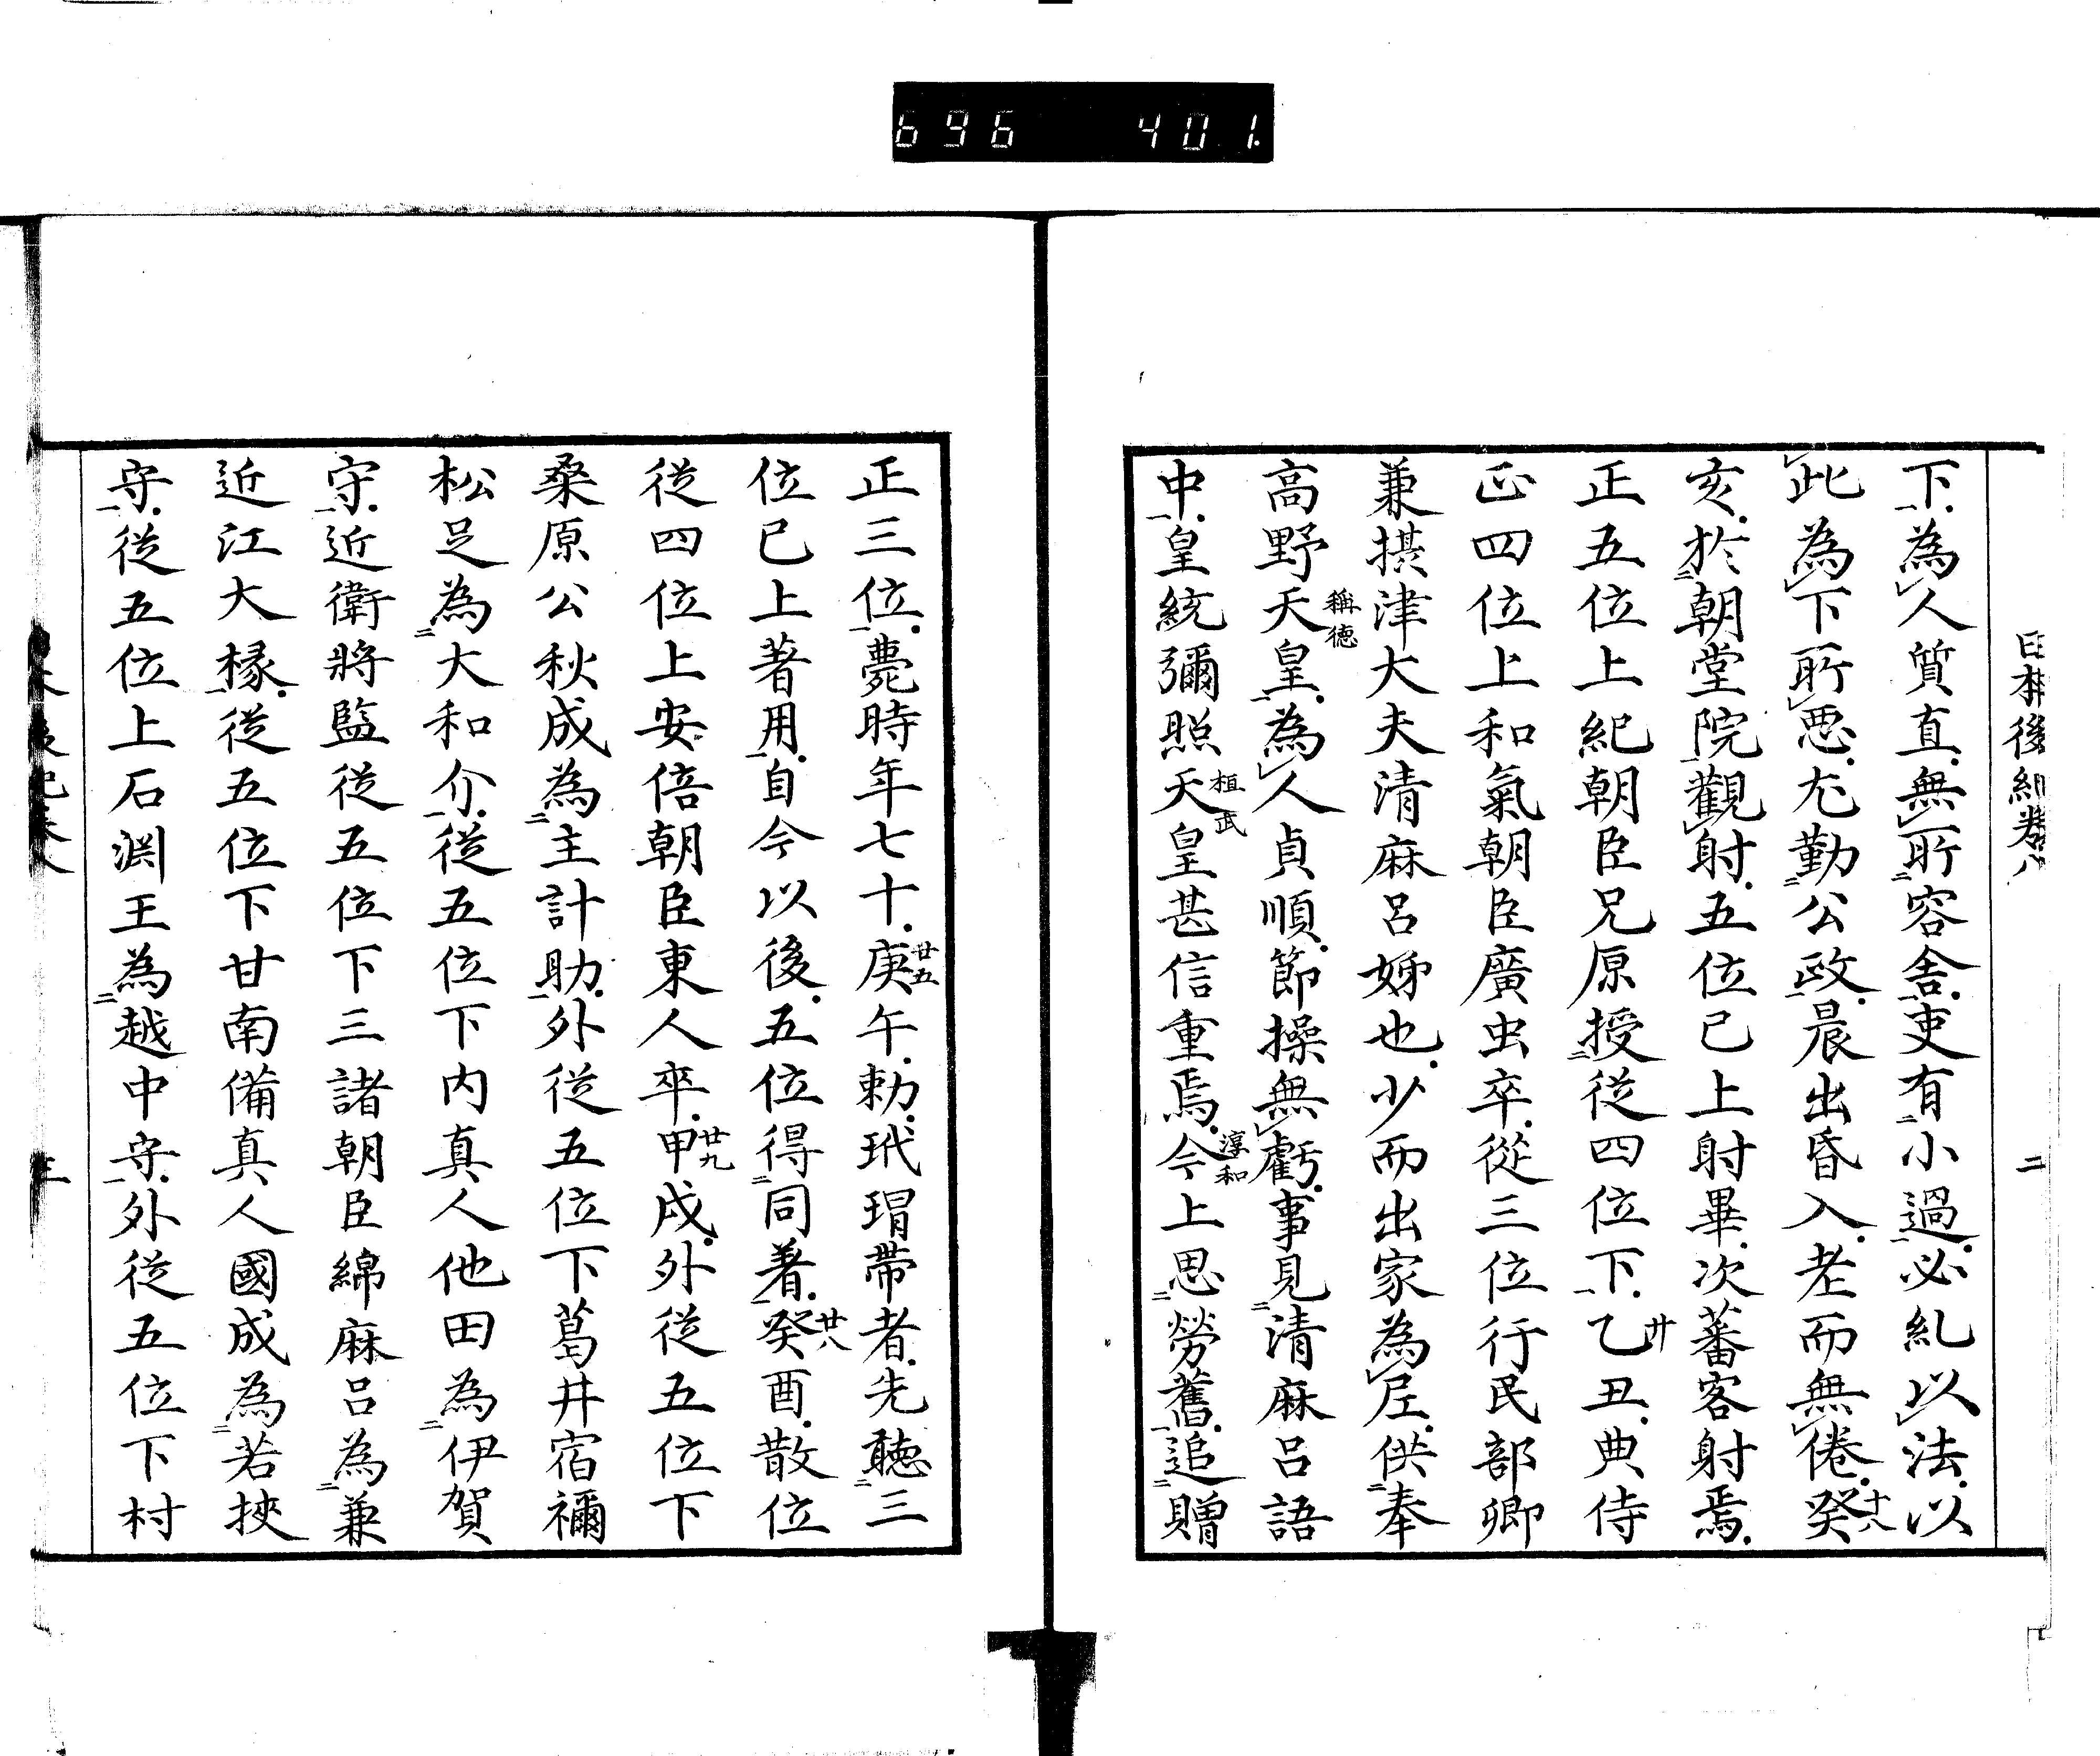 696 401.
日本後紀卷八 二
下為人質直無所容舍吏有小過必糺以法以
此為下所惡尢勤公政晨出昏入老而無倦癸十八
亥於朝堂院觀射五位已上射畢次蕃客射焉
正五位上紀朝臣兄原授從四位下乙廿丑典侍
正四位上和氣朝臣廣虫卒從三位行民部卿
兼攝津大夫清麻呂姊也少而出家為尼供奉
高野天皇稱德為人貞順節操無虧事見清麻呂語
中皇統彌照天皇桓武甚信重焉今上淳和思勞舊追贈
正三位薨時年七十庚廿五午勅玳瑁帶者先聽三
位已上著用自今以後五位得同着癸廿八酉散位
從四位上安倍朝臣東人卒甲廿九戌外從五位下
桑原公秋成為主計助外從五位下葛井宿禰
松足為大和介從五位下内真人他田為伊賀
守近衛將監從五位下三諸朝臣綿麻呂為兼
近江大椽從五位下甘南備真人國成為若挾
守從五位上石淵王為越中守外從五位下村